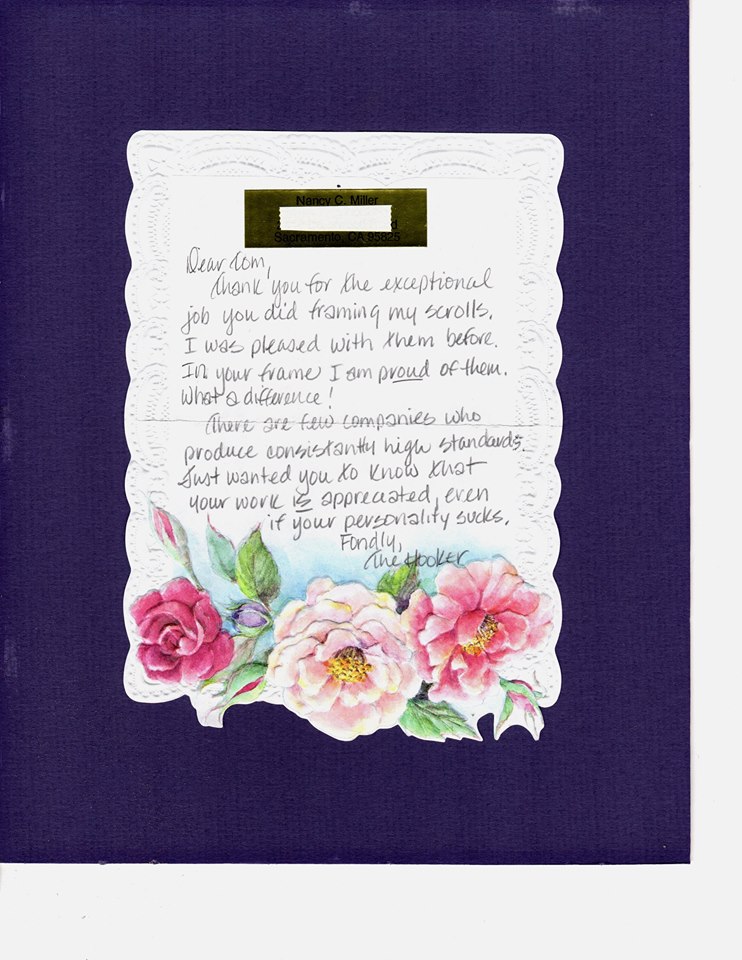 Nancy C. Miller
d
Sacramento, CA 95825
Dear Tom,
Thank you for the exceptional
job you did framing my scrolls.
I was pleased with them before.
In your frame I am proud of them.
What a difference!
There are few companies who
produce consistantly high standards.
Just wanted you to know that
your work is appreciated, even
if your personality sucks.
Fondly,
The Hooker